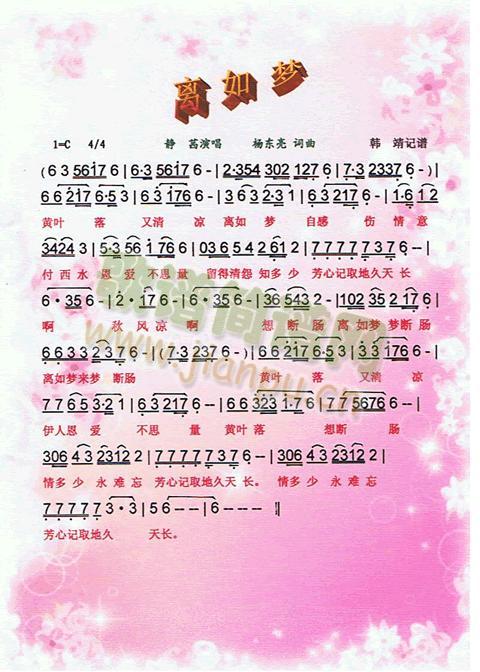 离如梦
1=C 4/4 静 茗演唱 杨东亮 词曲 韩 靖记谱
(6 3 5617 6 | 6·3 517 6 - | 2·354 302 127 6 | 7·3 2337 6 - ) |
6 6 217 6·5 3 | 6·3 176 6 - | 6 6 217 6 - | 6·3 217 6 | 1·6 1 2
黄叶 落 又清 凉 离如 梦 自感 伤 情 意
3424 3 | 5·3 56 1 766 | 03 6 5 4 2 61 2 | 7 7 7 7 7 3 7 6 - - |
付 西 水 恩 爱 不思 量 留得清怨 知多 少 芳心记取地久天 长
6 · 35 6 - | 2 · 17 6 - | 6 · 35 6 - | 36 543 2 - | 102 35 217 6 |
啊 秋 风凉 啊 想 断肠 离 如梦 梦断 肠
6 6 3 3 2 37 6 | (7·3 2317 6 - ) | 6 6 217 6·5 3 | 3 3 176 6 - |
离如梦来梦 断肠 黄叶 落 又清 凉
7 7 6 5 3·2 1 | 3 6 3 217 6 - | 6 6 323 1·7 6 | 1 7 5676 6 - |
伊人恩 爱 不思 量 黄叶 落 想断 肠
306 4 3 2312 2 | 7 7 7 7 7 3 7 6 - - | 306 4 3 2312 2 |
情多 少 永 难忘 芳心记取地久天 长。 情多 少 永 难忘
7 7 7 7 7 3 · 3 | 5 6 - - | 6 - - - ||
芳心记取地久 天长。
歌谱简谱网
www.jianpu.cn